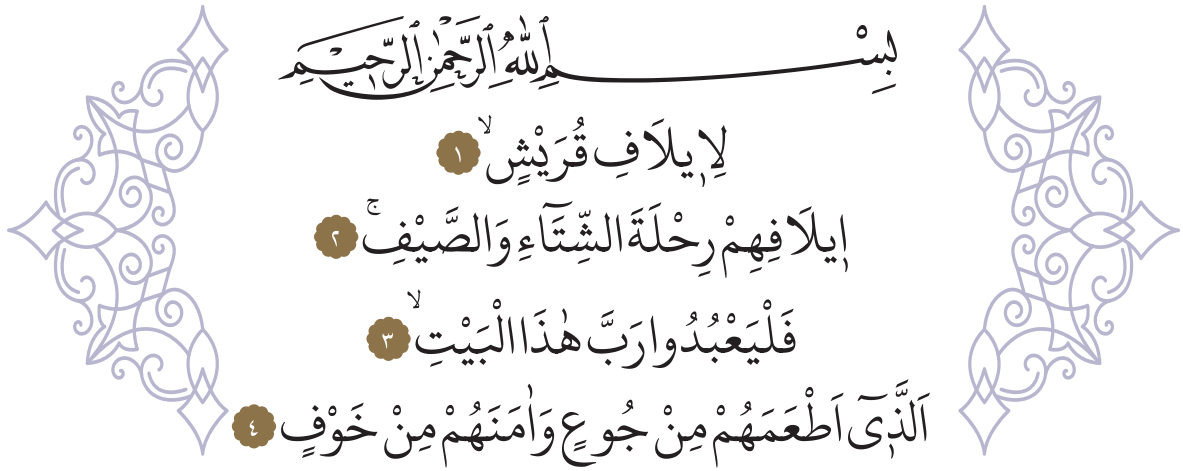 بِسْمِ ٱللّٰهِ ٱلرَّحْمٰنِ ٱلرَّحِيمِ
لِا۪يلَافِ قُرَيْشٍۙ ١
ا۪يلَافِهِمْ رِحْلَةَ الشِّتَٓاءِ وَالصَّيْفِۚ ٢
فَلْيَعْبُدُوا رَبَّ هٰذَا الْبَيْتِۙ ٣
اَلَّذ۪ٓي اَطْعَمَهُمْ مِنْ جُوعٍ وَاٰمَنَهُمْ مِنْ خَوْفٍ ٤